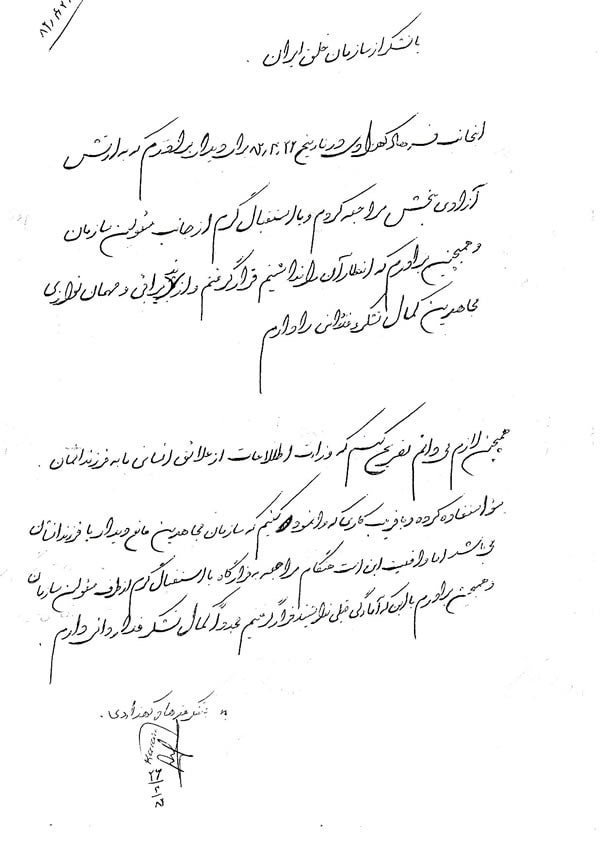 با تشکر از سازمان خلق ایران.
اینجانب فرهاد کهزادی در تاریخ ۸۲٫۴٫۲۲ برای دیدار برادرم که به ارتش
آزادی بخش مراجعه کردم و با استقبال گرم از جانب مسئولین سازمان
و همچنین برادرم که انتظار آن را نداشتیم قرار گرفتم و از پذیرائی و مهمان نوازی
مجاهدین کمال تشکر و قدردانی را دارم
همچنین لازم می دانم تصریح کنم که وزارت اطلاعات از علائق انسانی ما به فرزندانمان
سوء استفاده کرده و با فریب کاری که وانمود کنیم که سازمان مجاهدین مانع دیدار با فرزندانشان
می باشد اما واقعیت این است هنگام مراجعه به قرارگاه با استقبال گرم از طرف مسئولین سازمان
و همچنین برادرم با این که آمادگی قبلی نداشتند قرار گرفتیم مجدداً کمال تشکر و قدردانی دارم
با تشکر فرهاد کهزادی.